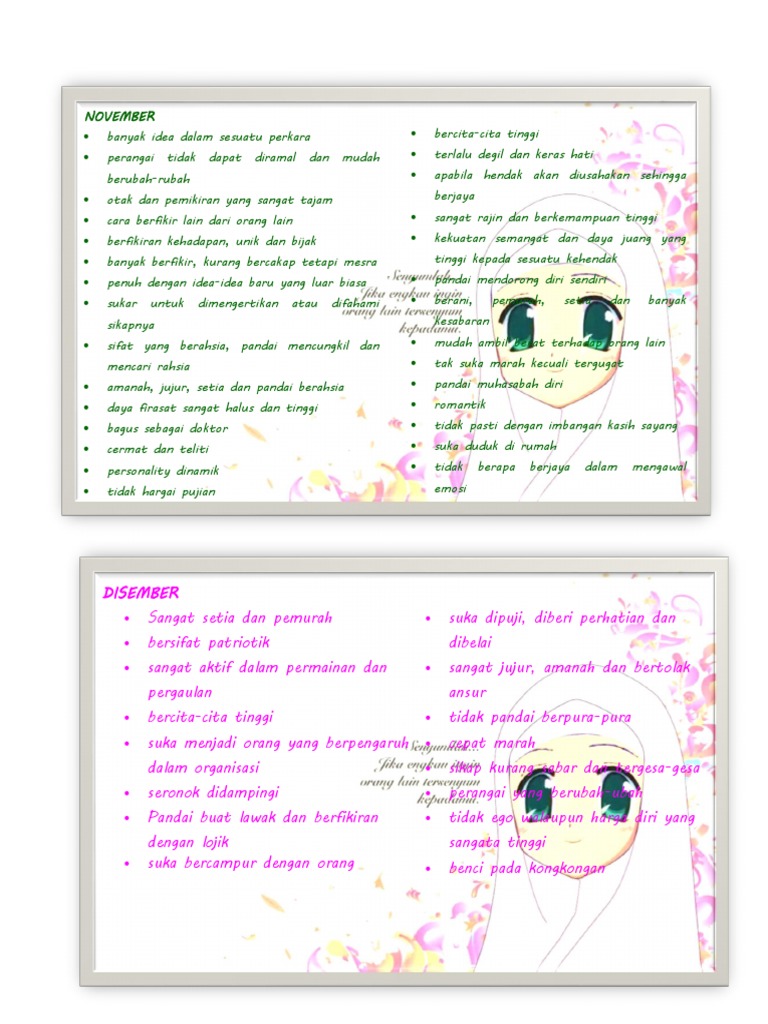 NOVEMBER
• banyak idea dalam sesuatu perkara
• perangai tidak dapat diramal dan mudah
berubah-rubah
• otak dan pemikiran yang sangat tajam
• cara berfikir lain dari orang lain
• berfikiran kehadapan, unik dan bijak
• banyak berfikir, kurang bercakap tetapi mesra
• penuh dengan idea-idea baru yang luar biasa
• sukar untuk dimengertikan atau difahami
sikapnya
• sifat yang berahsia, pandai mencungkil dan
mencari rahsia
• amanah, jujur, setia dan pandai berahsia
• daya firasat sangat halus dan tinggi
• bagus sebagai doktor
• cermat dan teliti
• personality dinamik
• tidak hargai pujian
• bercita-cita tinggi
• terlalu degil dan keras hati
• apabila hendak akan diusahakan sehingga
berjaya
• sangat rajin dan berkemampuan tinggi
• kekuatan semangat dan daya juang yang
tinggi kepada sesuatu kehendak
• pandai mendorong diri sendiri
• berani, pemurah, setia dan banyak
kesabaran
• mudah ambil berat terhadap orang lain
• tak suka marah kecuali tergugat
• pandai muhasabah diri
• romantik
• tidak pasti dengan imbangan kasih sayang
• suka duduk di rumah
• tidak berapa berjaya dalam mengawal
emosi
Senyumlah...
Jika engkau ingin
orang lain tersenyum
kepadamu.
DISEMBER
• Sangat setia dan pemurah
• bersifat patriotik
• sangat aktif dalam permainan dan
pergaulan
• bercita-cita tinggi
• suka menjadi orang yang berpengaruh
dalam organisasi
• seronok didampingi
• Pandai buat lawak dan berfikiran
dengan lojik
• suka bercampur dengan orang
• suka dipuji, diberi perhatian dan
dibelai
• sangat jujur, amanah dan bertolak
ansur
• tidak pandai berpura-pura
• cepat marah
• sikap kurang sabar dan tergesa-gesa
• perangai yang berubah-ubah
• tidak ego walaupun harga diri yang
sangata tinggi
• benci pada kongkongan
Senyumlah...
Jika engkau ingin
orang lain tersenyum
kepadamu.